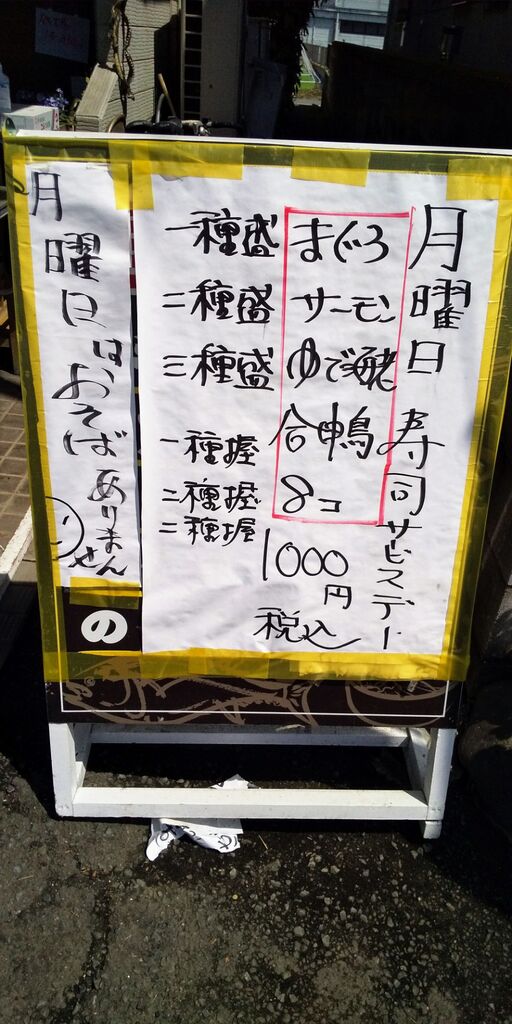 月曜日寿司サービスデー
まぐろ
サーモン
ゆで海老
合鴨
8コ
1000
円
税込
一種盛
二種盛
三種盛
一種握
二種握
二種握
月曜日はおそばありません
の